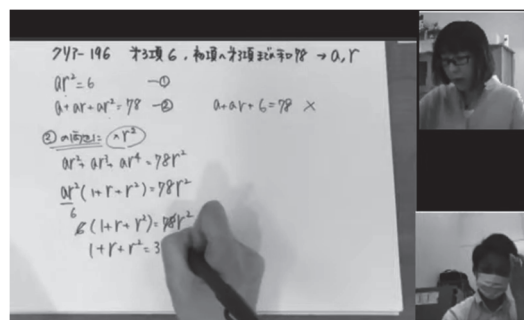 クリアー196 第3項6,初項〜第3項までの和78 → a,r
ar²=6 —①
a+ar+ar²=78 —② a+ar+6=78 ×
②の両辺に×r²
ar²+ar³+ar⁴=78r²
ar²(1+r+r²)=78r²
6
6(1+r+r²)=78r²
1+r+r²=3